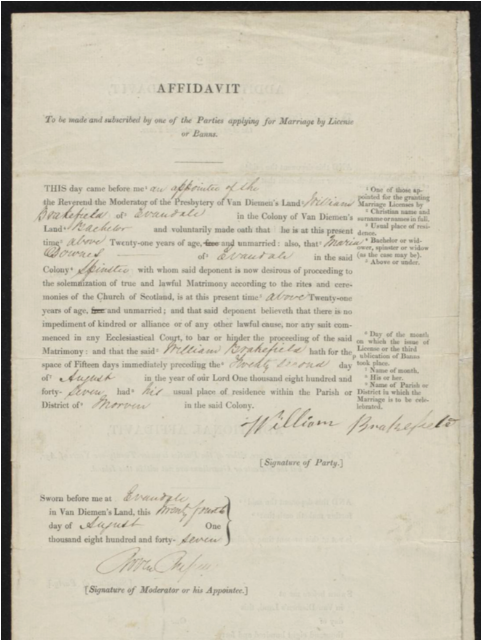 AFFIDAVIT
To be made and subscribed by one of the Parties applying for Marriage by License
or Banns.
THIS day came before me¹ an appointee of the
the Reverend the Moderator of the Presbytery of Van Diemen's Land² William
Brakefield of³ Evandale in the Colony of Van Diemen's
Land⁴ Bachelor and voluntarily made oath that he is at this present
time⁵ above Twenty-one years of age, free and unmarried: also, that² Maria
of³ Evandale in the said
Colony⁴ Spinster with whom said deponent is now desirous of proceeding to
the solemnization of true and lawful Matrimony according to the rites and cere-
monies of the Church of Scotland, is at this present time⁵ above Twenty-one
years of age, free and unmarried; and that said deponent believeth that there is no
impediment of kindred or alliance or of any other lawful cause, nor any suit com-
menced in any Ecclesiastical Court, to bar or hinder the proceeding of the said
Matrimony: and that the said² William Brakefield hath for the
space of Fifteen days immediately preceding the⁶ Twenty Second day
of⁷ August in the year of our Lord One thousand eight hundred and
forty- Seven had⁸ his usual place of residence within the Parish or
District of⁹ Morven in the said Colony.
William Brakefield
[Signature of Party.]
¹ One of those ap-
pointed for the granting
Marriage Licenses by
² Christian name and
surname or names in full.
³ Usual place of resi-
dence.
⁴ Bachelor or wid-
ower, spinster or widow
(as the case may be).
⁵ Above or under.
⁶ Day of the month
on which the issue of
License or the third
publication of Banns
took place.
⁷ Name of month.
⁸ His or her.
⁹ Name of Parish or
District in which the
Marriage is to be cele-
brated.
Sworn before me at Evandale
in Van Diemen's Land, this Twenty fourth
day of August One
thousand eight hundred and forty- seven
[Signature of Moderator or his Appointee.]